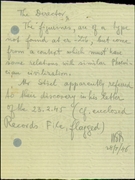 The Director,
The figurines, are of a type
not found as a rule, but come
from a context which must have
some relations with similar
civilization.
Mr. apparently referred
to their discovery in his letter
of the 23.2.45 (cf. enclosed
Records File, flagged)